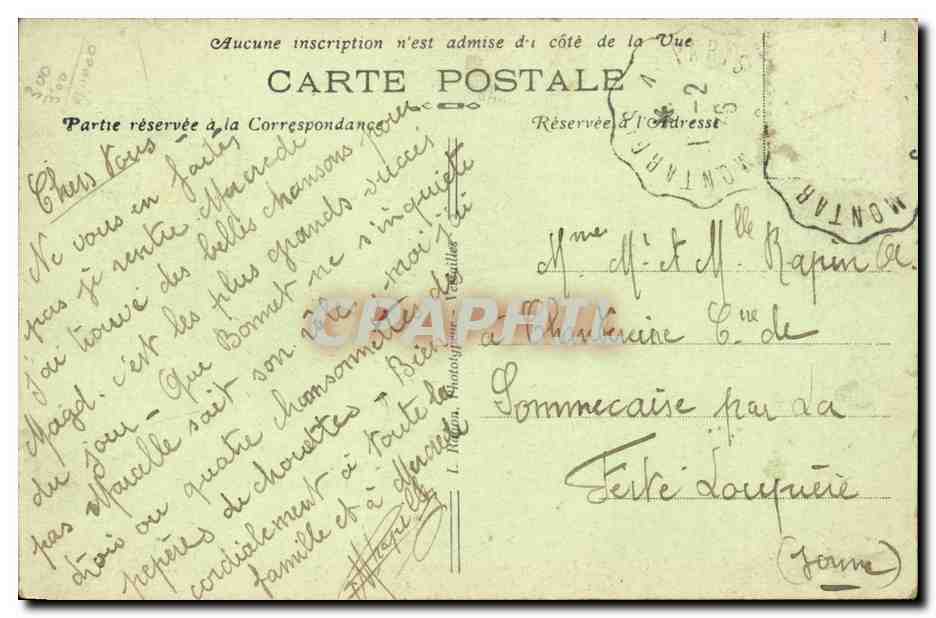 Aucune inscription n'est admise du côté de la Vue
CARTE POSTALE
Partie réservée à la Correspondance
Réservée à l'Adresse
300
300
1000
Chers tous
Ne vous en faites
pas je rentre Mercredi
J'ai trouvé des belles chansons pour
Magd. c'est les plus grands succès
du jour - Que Bonnet ne s'inquiète
pas Marcelle sait son rôle à moi j'ai
trois ou quatre chansonnettes des
pepères du chouettes - Bien
cordialement à toute la
famille et à Marcelle
L. Ragon, Phototypeur, Versailles
CPAPHIL
PARIS
1-2
MONTARG
MONTAR
Mme Mr et Mlle Rapin
à Chambeviere Cne de
Sommecaise par La
Ferté Loupière
(Yonne)